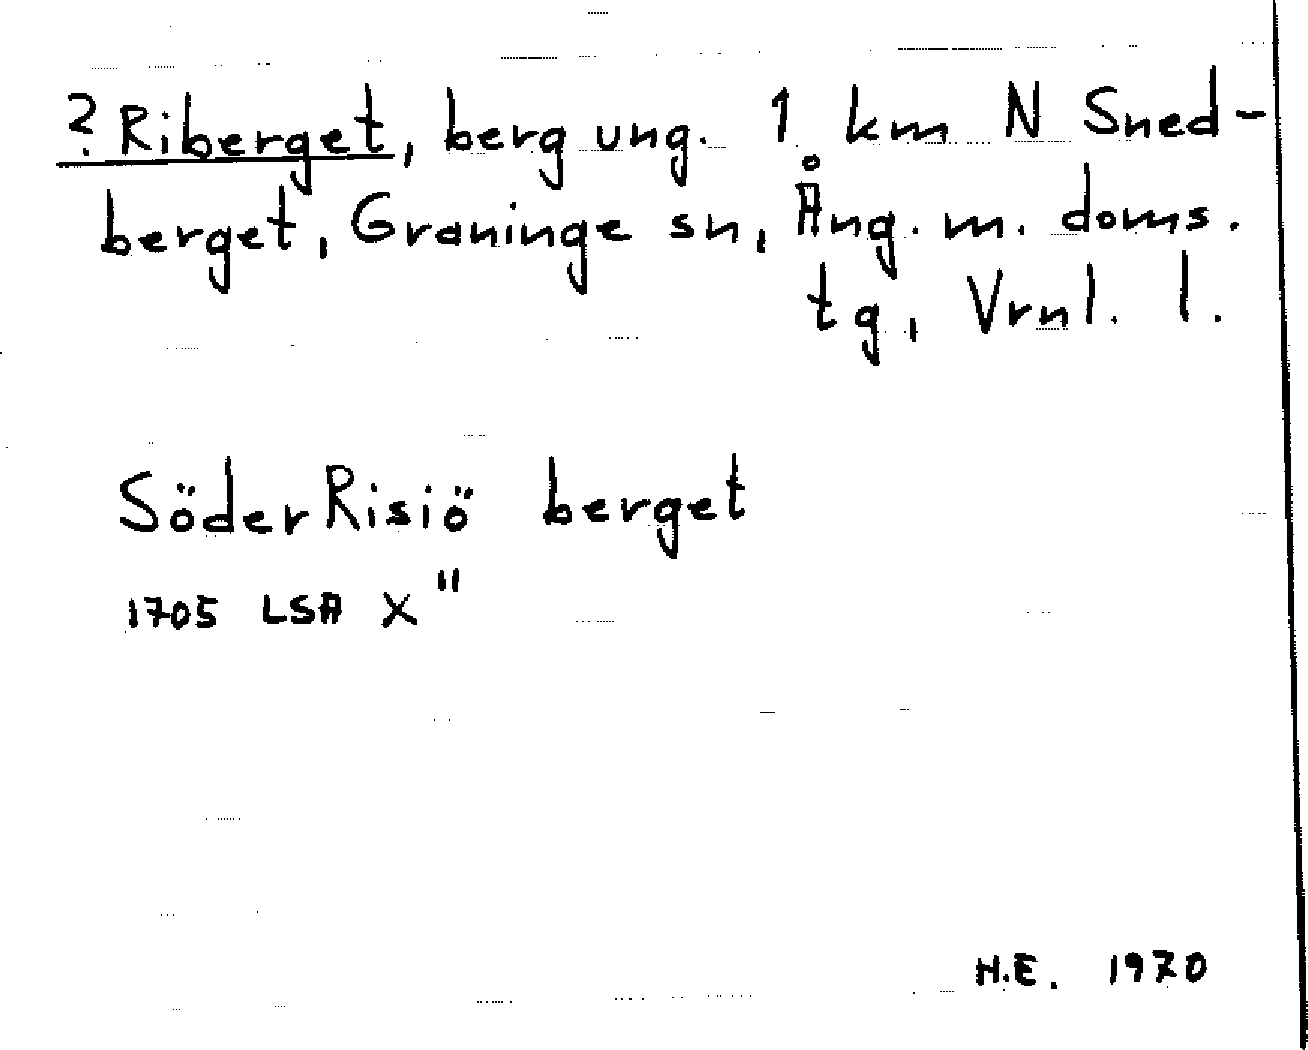 ? Riberget, berg ung. 1 km N Sned-
berget, Graninge sn, Ång. m. doms.
tg, Vrnl. l.
Söder Risiö berget
1705 LSA X"
H.E. 1970